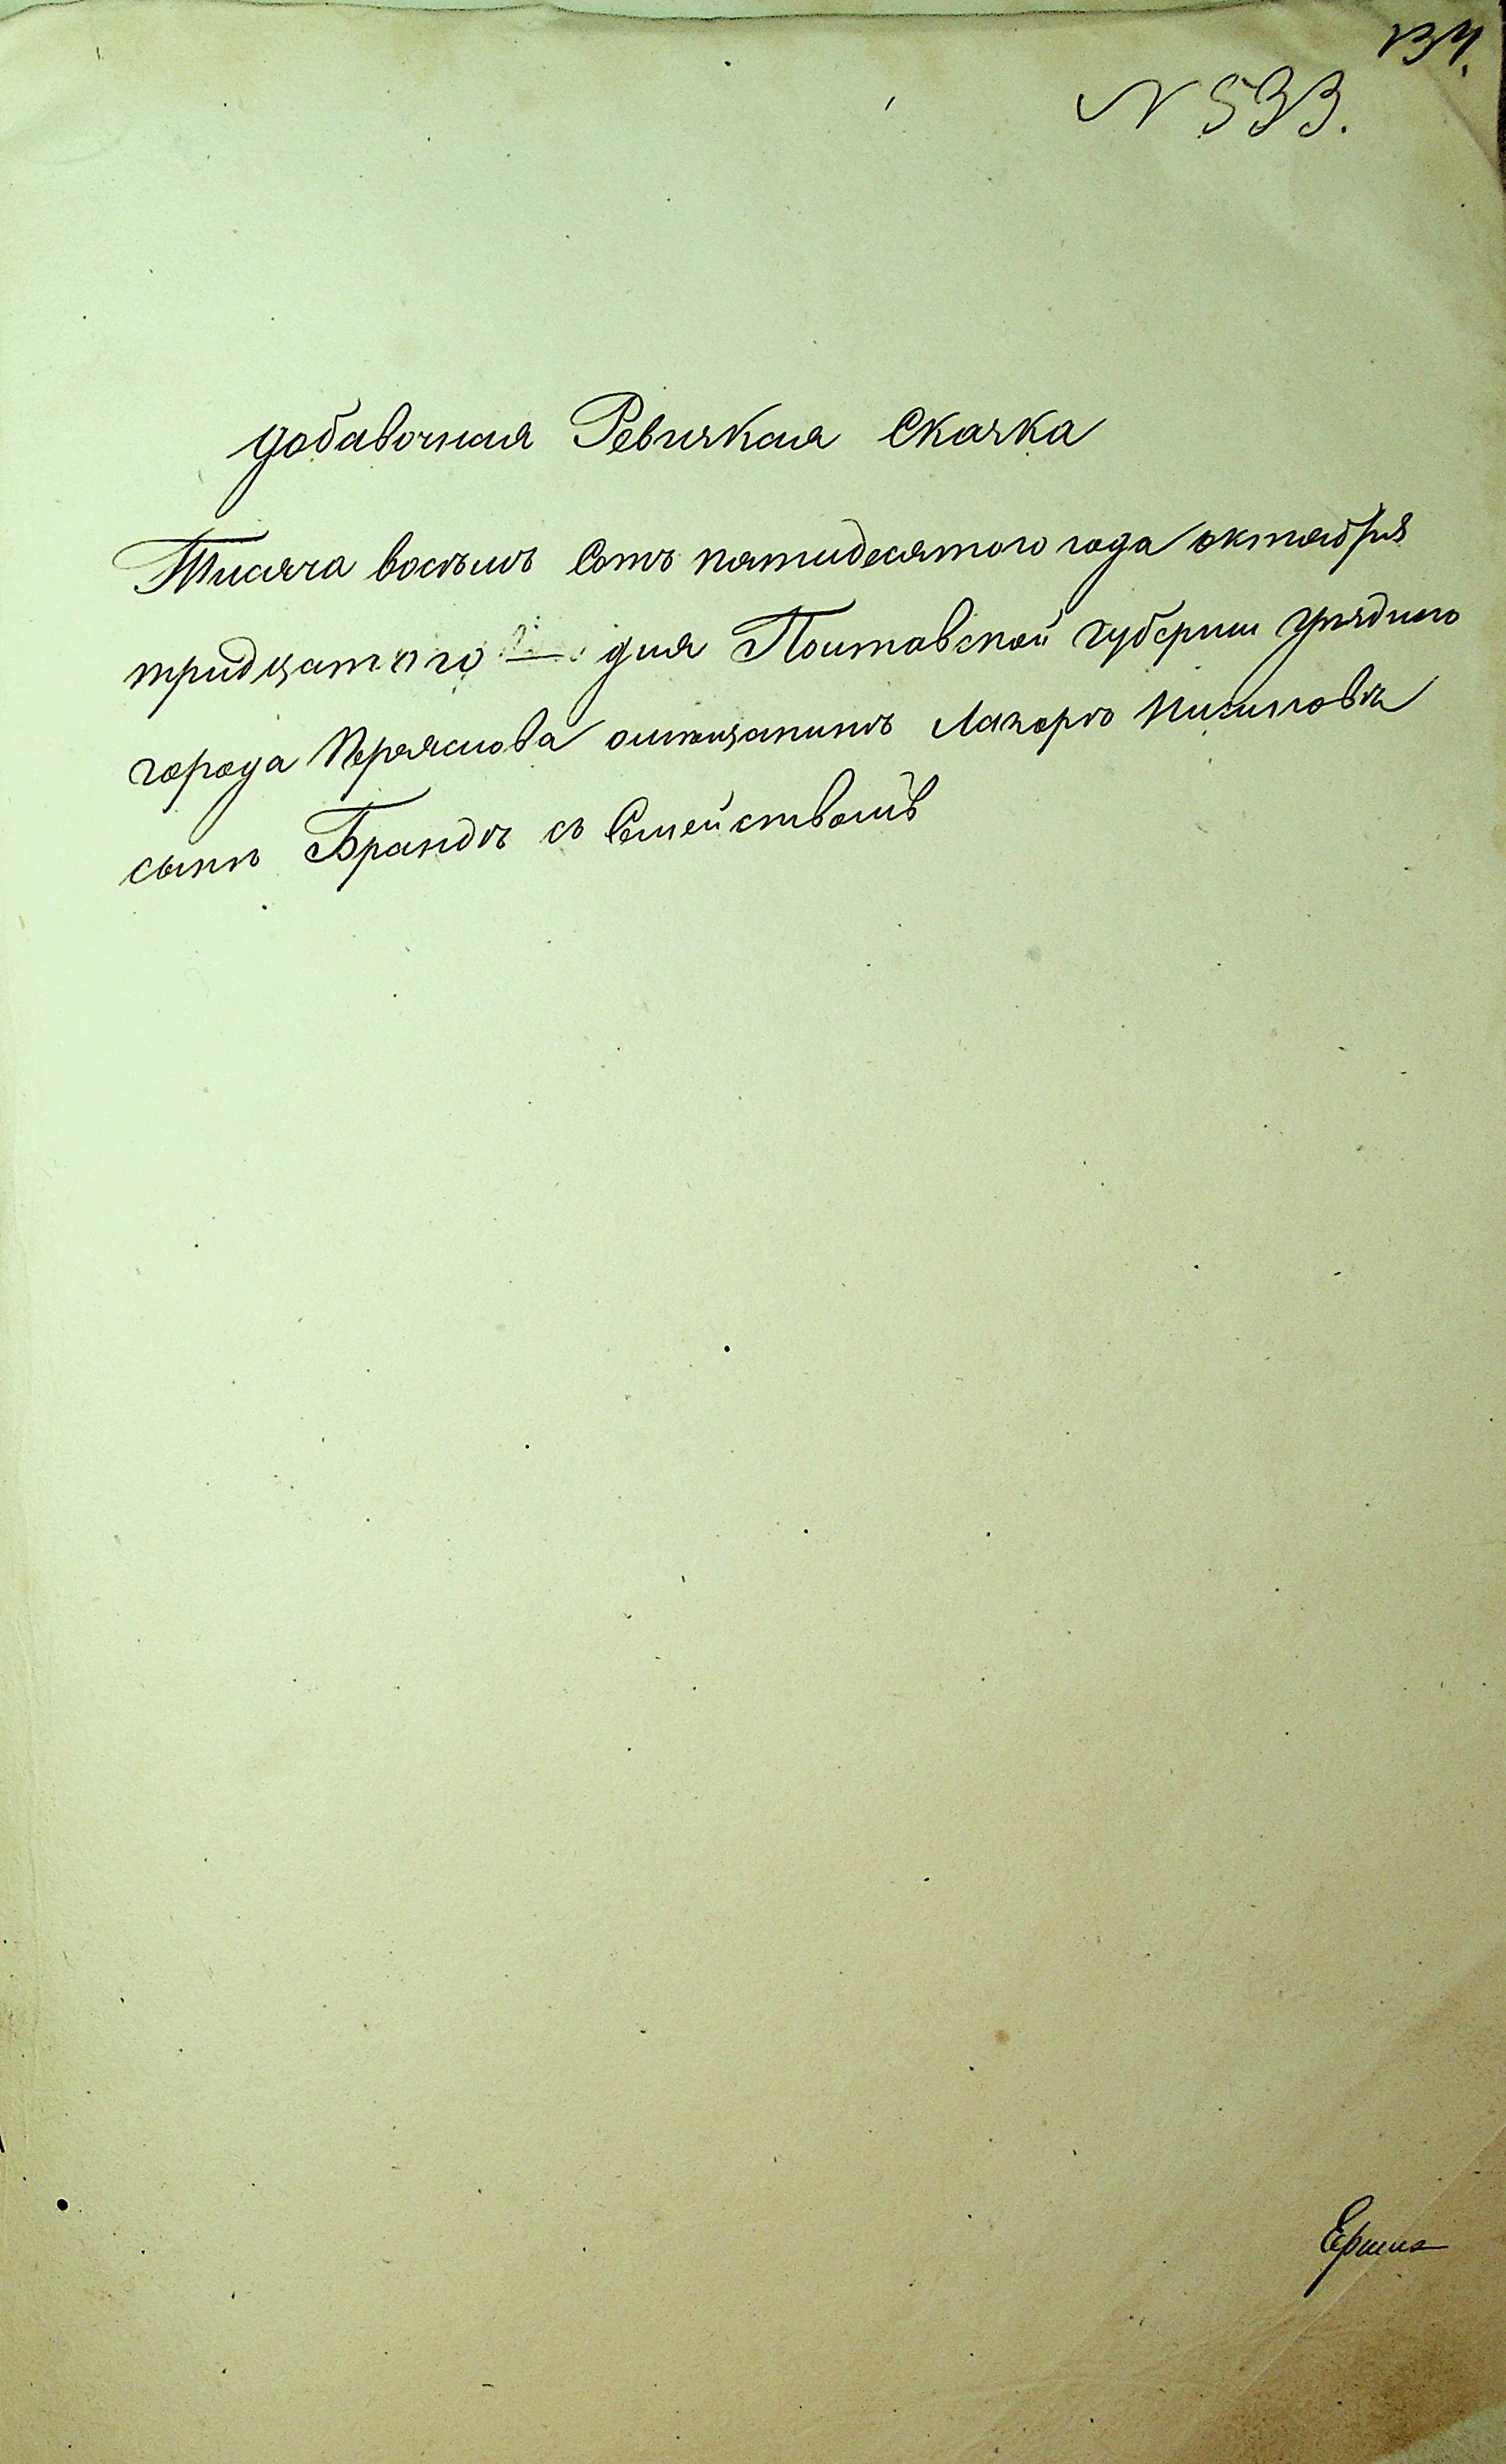 134.
N 533.
добавочная Ревизкая Сказка
Тисяча восемъ Сотъ пятидесятого года октября
тридцатого — дня Полтавской губернии уезднаго
города Переяслова о мещанинъ Лазоръ
сынъ Брандъ съ Семействомъ